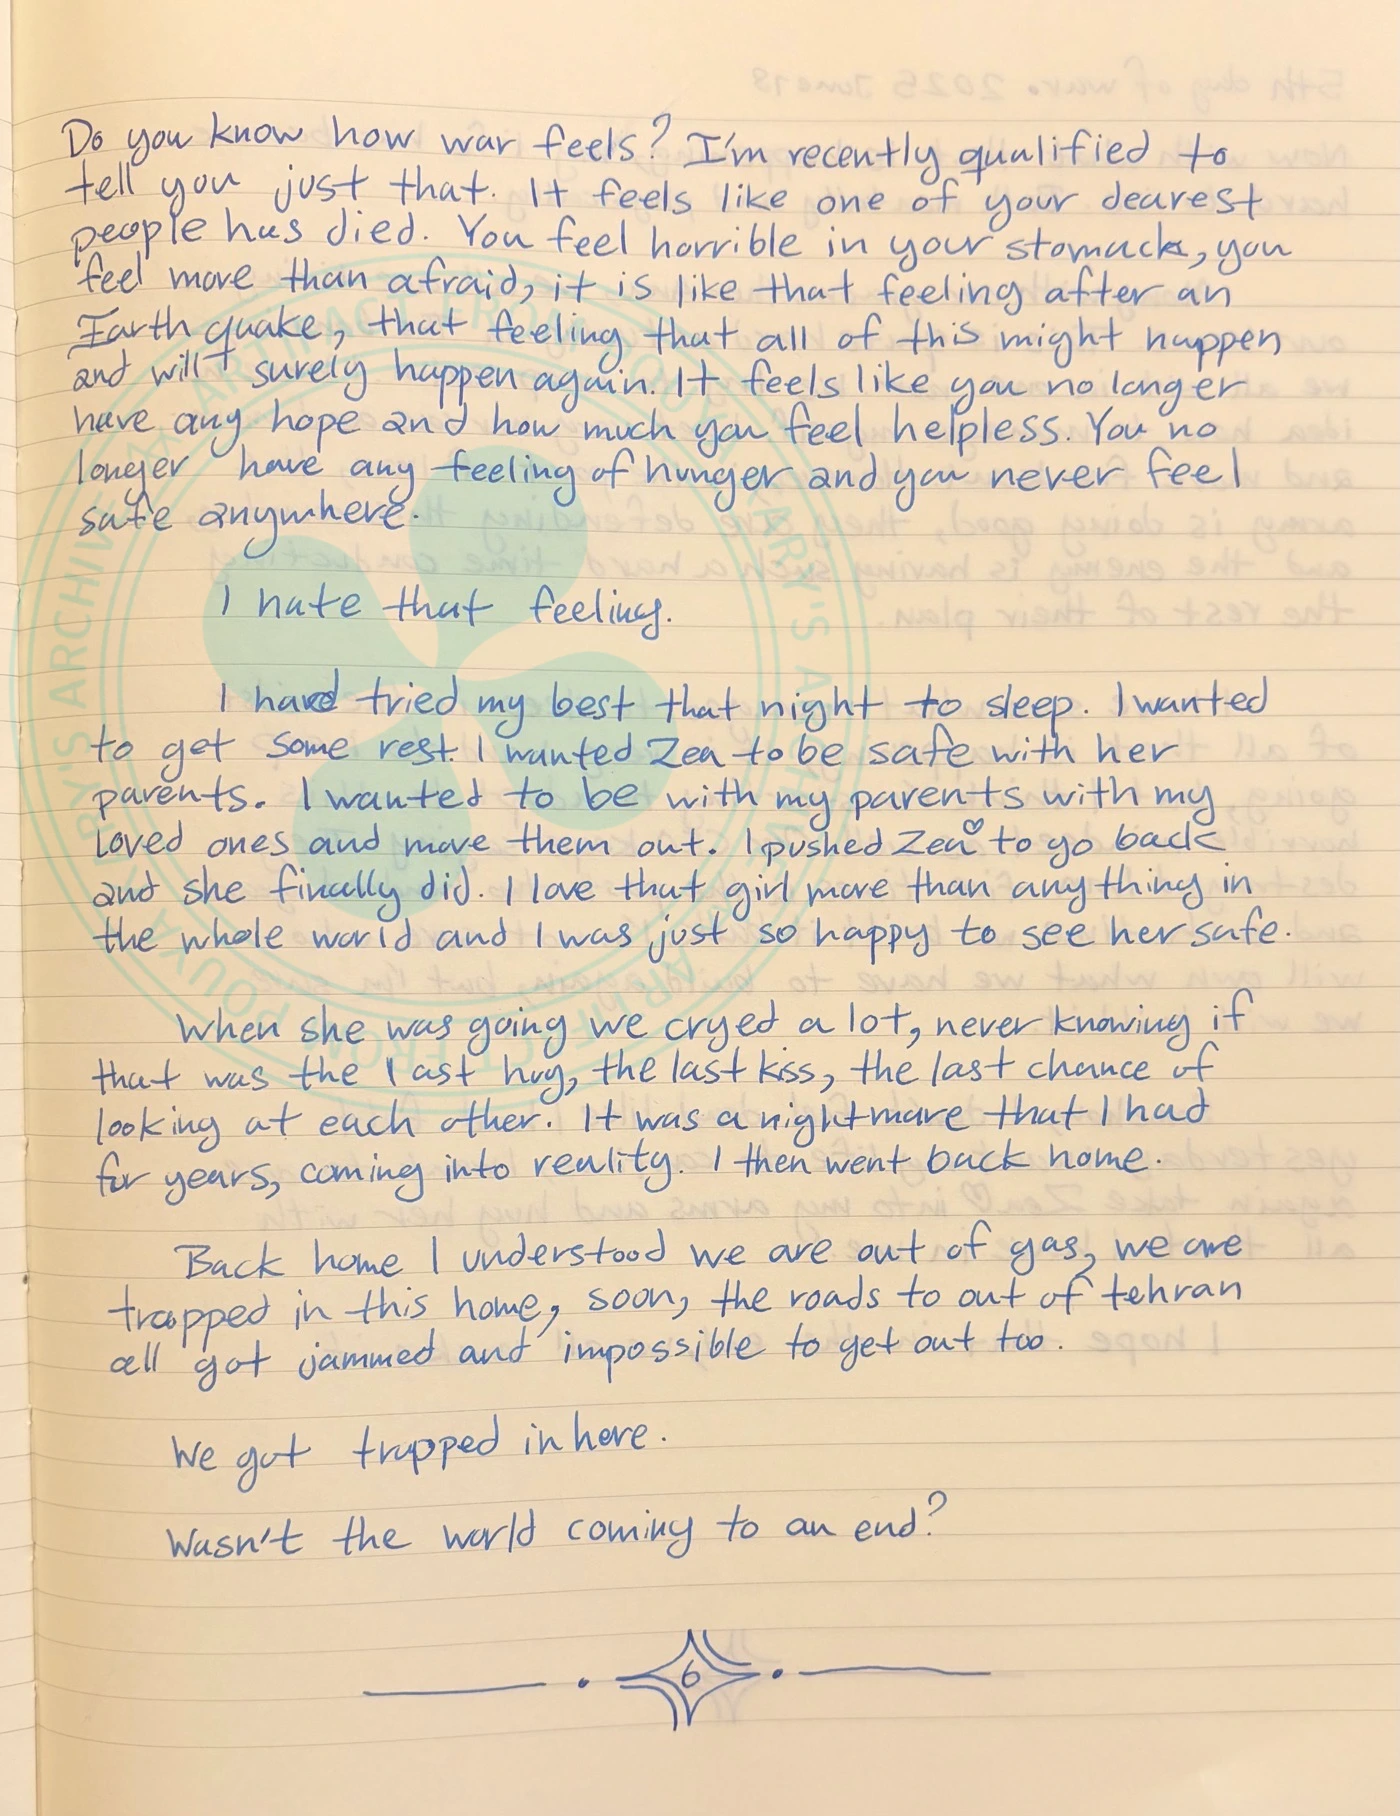 Do you know how war feels? I'm recently qualified to
tell you just that. It feels like one of your dearest
people has died. You feel horrible in your stomack, you
feel more than afraid, it is like that feeling after an
Earth quake, that feeling that all of this might happen
and will surely happen again. It feels like you no longer
have any hope and how much you feel helpless. You no
longer have any feeling of hunger and you never feel
safe anywhere.
I hate that feeling.
I had tried my best that night to sleep. I wanted
to get some rest. I wanted Zea to be safe with her
parents. I wanted to be with my parents with my
loved ones and move them out. I pushed Zea♡ to go back
and she finally did. I love that girl more than anything in
the whole world and I was just so happy to see her safe.
When she was going we cryed a lot, never knowing if
that was the last hug, the last kiss, the last chance of
looking at each other. It was a nightmare that I had
for years, coming into reality. I then went back home.
Back home I understood we are out of gas, we are
trapped in this home, soon, the roads to out of tehran
all got jammed and impossible to get out too.
We got trapped in here.
Wasn't the world coming to an end?
6